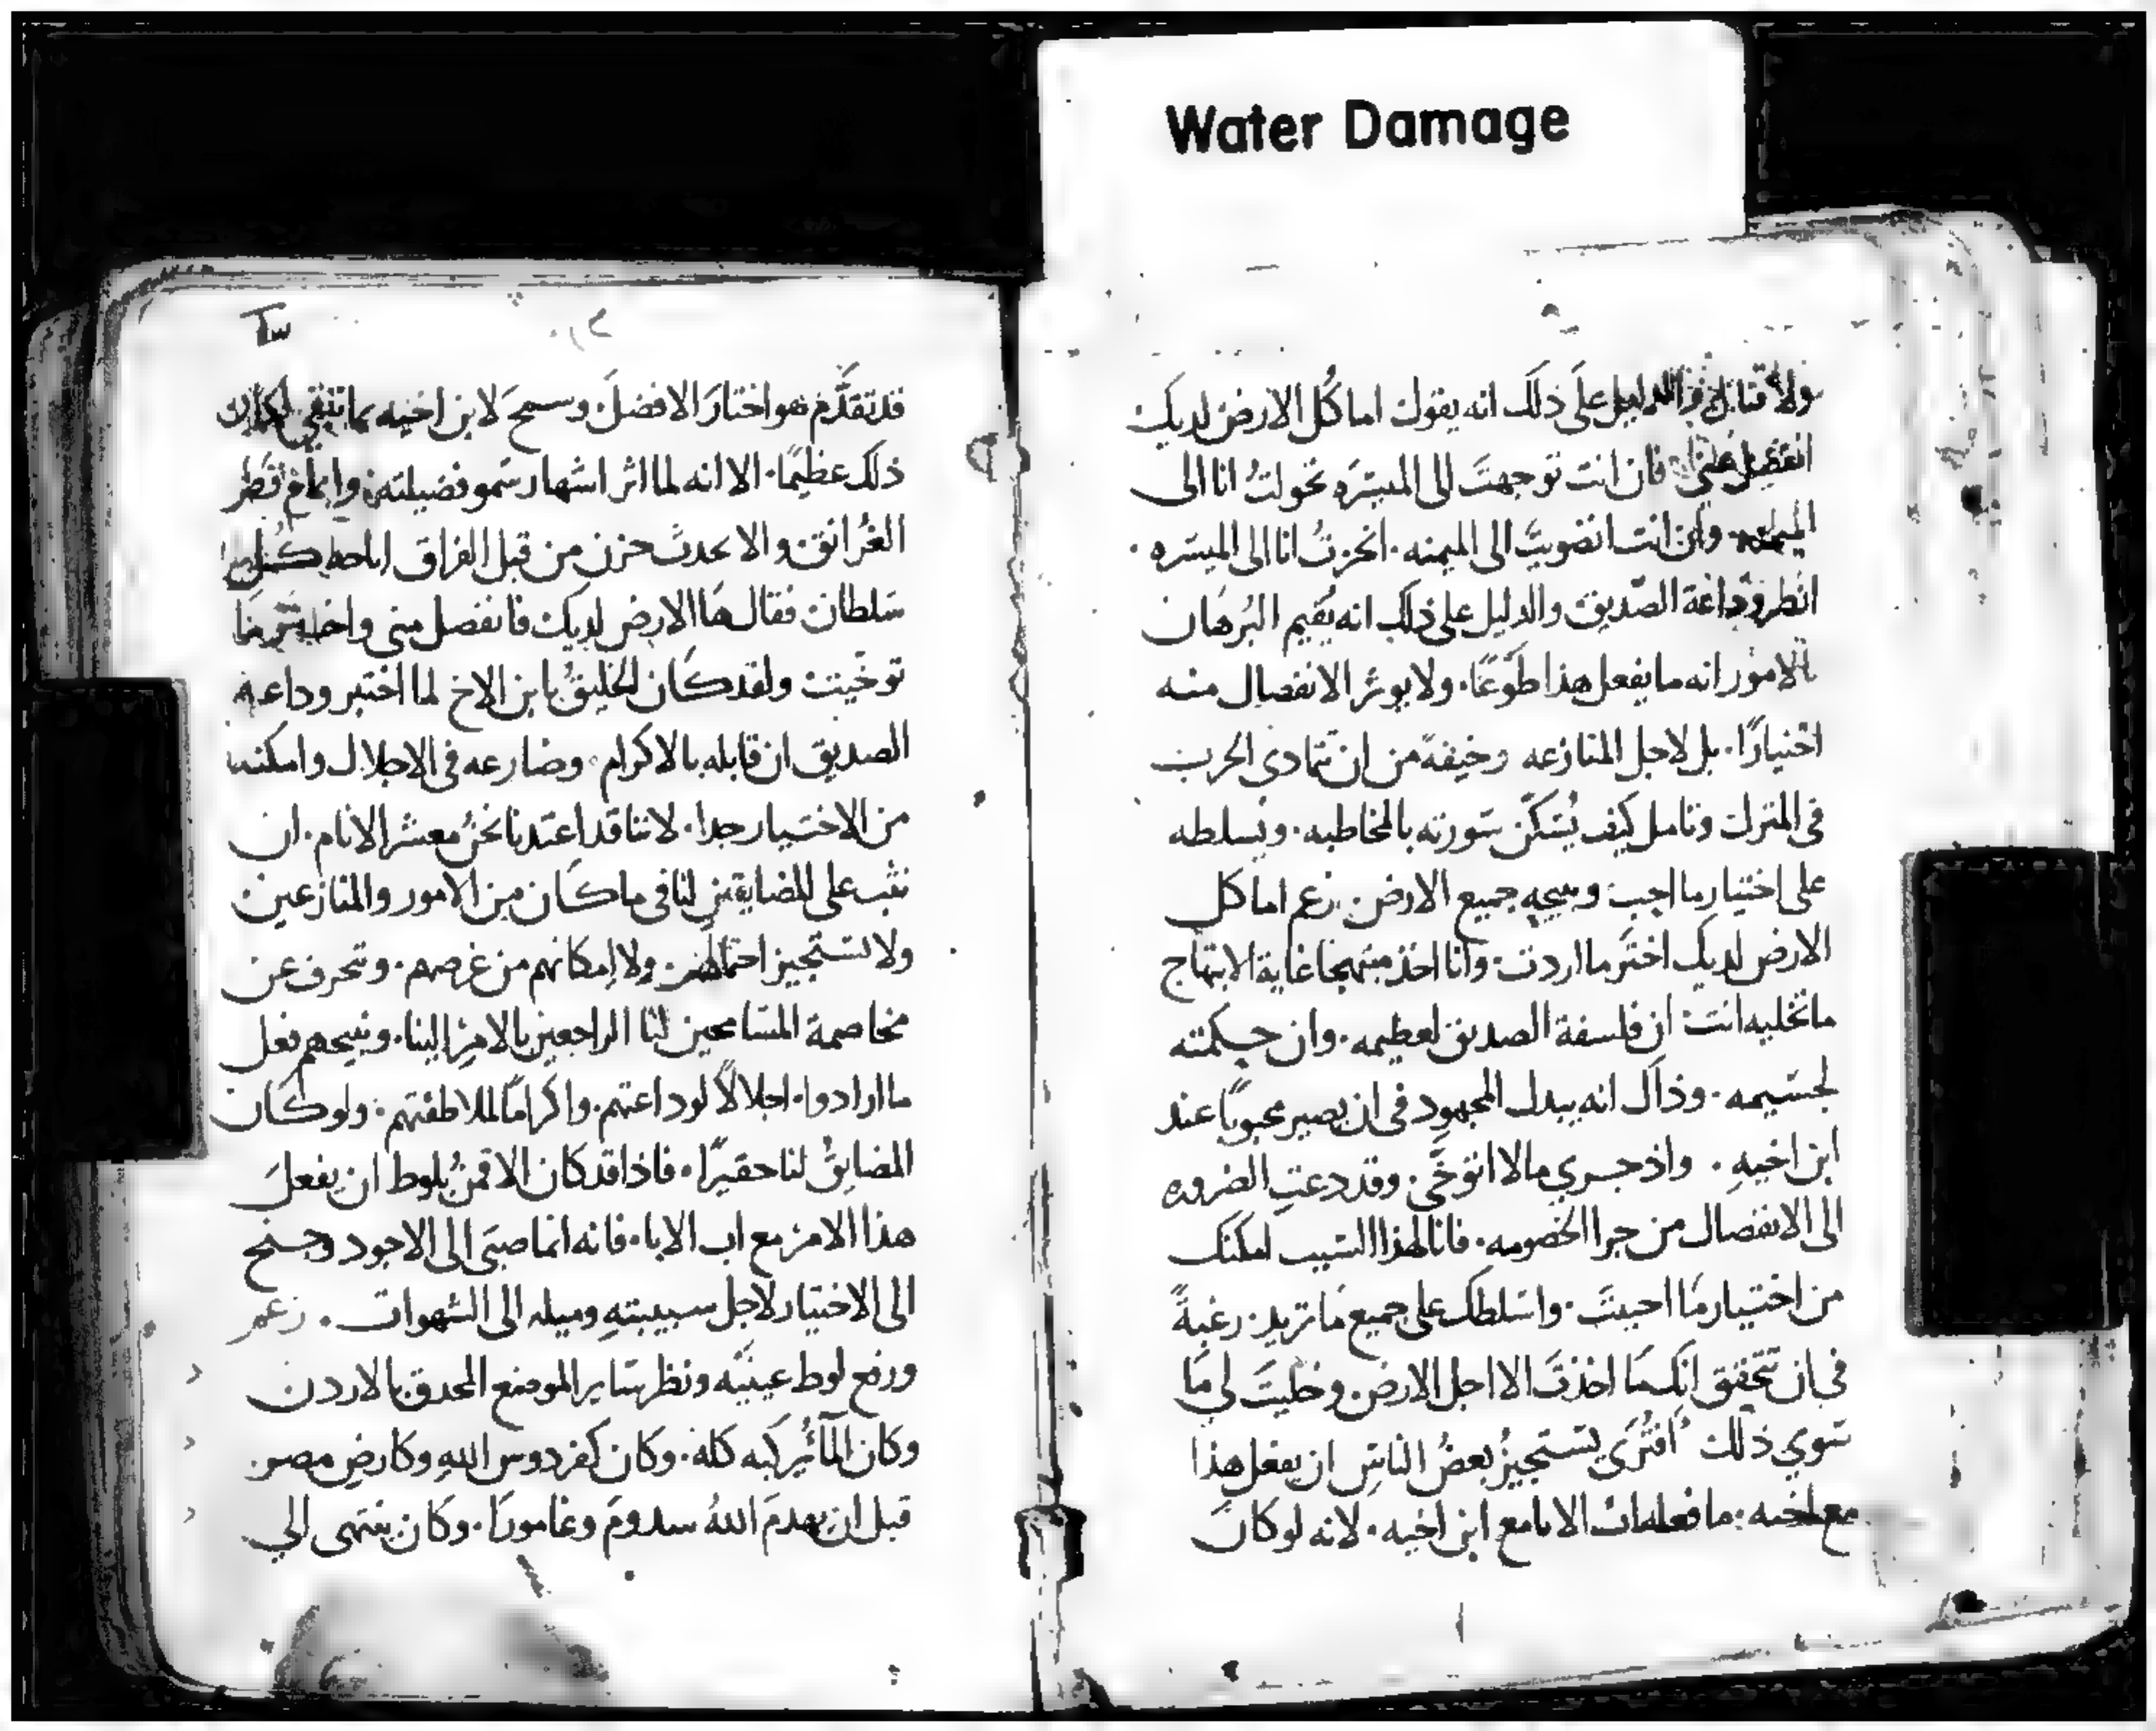 Water Damage
على ذلك انه يقول اما كُل الارض لديك
فان انت توجهتَ الى الميسَره تحولتُ انا الى
وان انت انضويتَ الى الميمنه · انحزتُ انا الى الميسَره ·
انظر وداعة الصّديق والدليل على ذلك انه يُقيم البُرهان
بالامور انه ما يفعل هذا طَوعًا · ولا يوثر الانفصال منه
اختيارًا · بل لاجل المنازعه وخيفةً من ان تتمادى الحرب
فى المنزل وتامل كيف يُسَكّن سَورته بالمخاطبه · ويسلطه
على اختيار ما احب ويبيحه جميع الارض · زعم اما كل
الارض لديك اختَر ما اردت · وانا اخذ مبتهجا غاية الابتهاج
ما تخليه انت ان فلسفة الصديق لعظيمه · وان حكمته
لجسَيمه · وذاك انه يبدل المجهود فى ان يصير محبوبًا عند
ابن اخيهِ · واذ جري مالا اتوخَّى · وقد دعتِ الضروره
الى الانفصال من جرا الخصومه · فانا لهذا السَبب امكنك
من اختيار مَا احببتَ · واسَلطك على جميع مَا تريد · رغبةً
فى ان تتحقق انك مَا اخذتَ الا اجل الارض · وخليتَ لي مَا
سَوي ذلك · افتُرَى يستجيزُ بعضُ الناسِ ان يفعل هذا
مع اخيه · ما فعله اب الابا مع ابن اخيه · لانه لو كانَ
قد تقدَّم هو اختارَ الافضلَ وسمحَ لابن اخيه بما تبقي لكان
ذلك عظيمًا · الا انه لما اثر اشهار سَمو فضيلته
والا يحدث حزن من قبل الفراق اباحه كُل
سَلطان فقال هَا الارض لديك فانفصل مني
توخيت ولقد كان الخليقُ بابن الاخ لما اختبر وداعة
الصديق ان قابله بالاكرام · وضارعه فى الاجلال وامكنه
من الاختيار جدا · لاننا قد اعتدنا نحنُ معشر الانام · ان
نثب على المضايقين لنا فى ما كان من الامور والمنازعين
ولا نستجيز احتمالهم · ولا امكانهم من غرضهم · وننحرف عن
مخاصمة المسَامحين لنا الراجعين بالامرِ الينا · ونبيحهم فعل
ما ارادوا · اجلالاً لوداعتهم · واكرامًا لملاطفتهم · ولو كان
المضايقُ لنا حقيرًا · فاذا قد كان الاقمنُ بلوط ان يفعلَ
هذا الامر مع اب الابا · فانه انما صبَى الى الاجود وجنح
الى الاختيار لاجل سبيبتهِ وميله الى الشهوات · زعم
ورفع لوط عينيَه ونظر سَاير الموضع المحدق بالاردن
وكان المآثيركبه كله · وكان كفردوس اللهِ وكارضِ مصر ·
قبل ان يهدمَ اللهُ سدومَ وغامورَا · وكان ينتهى الي